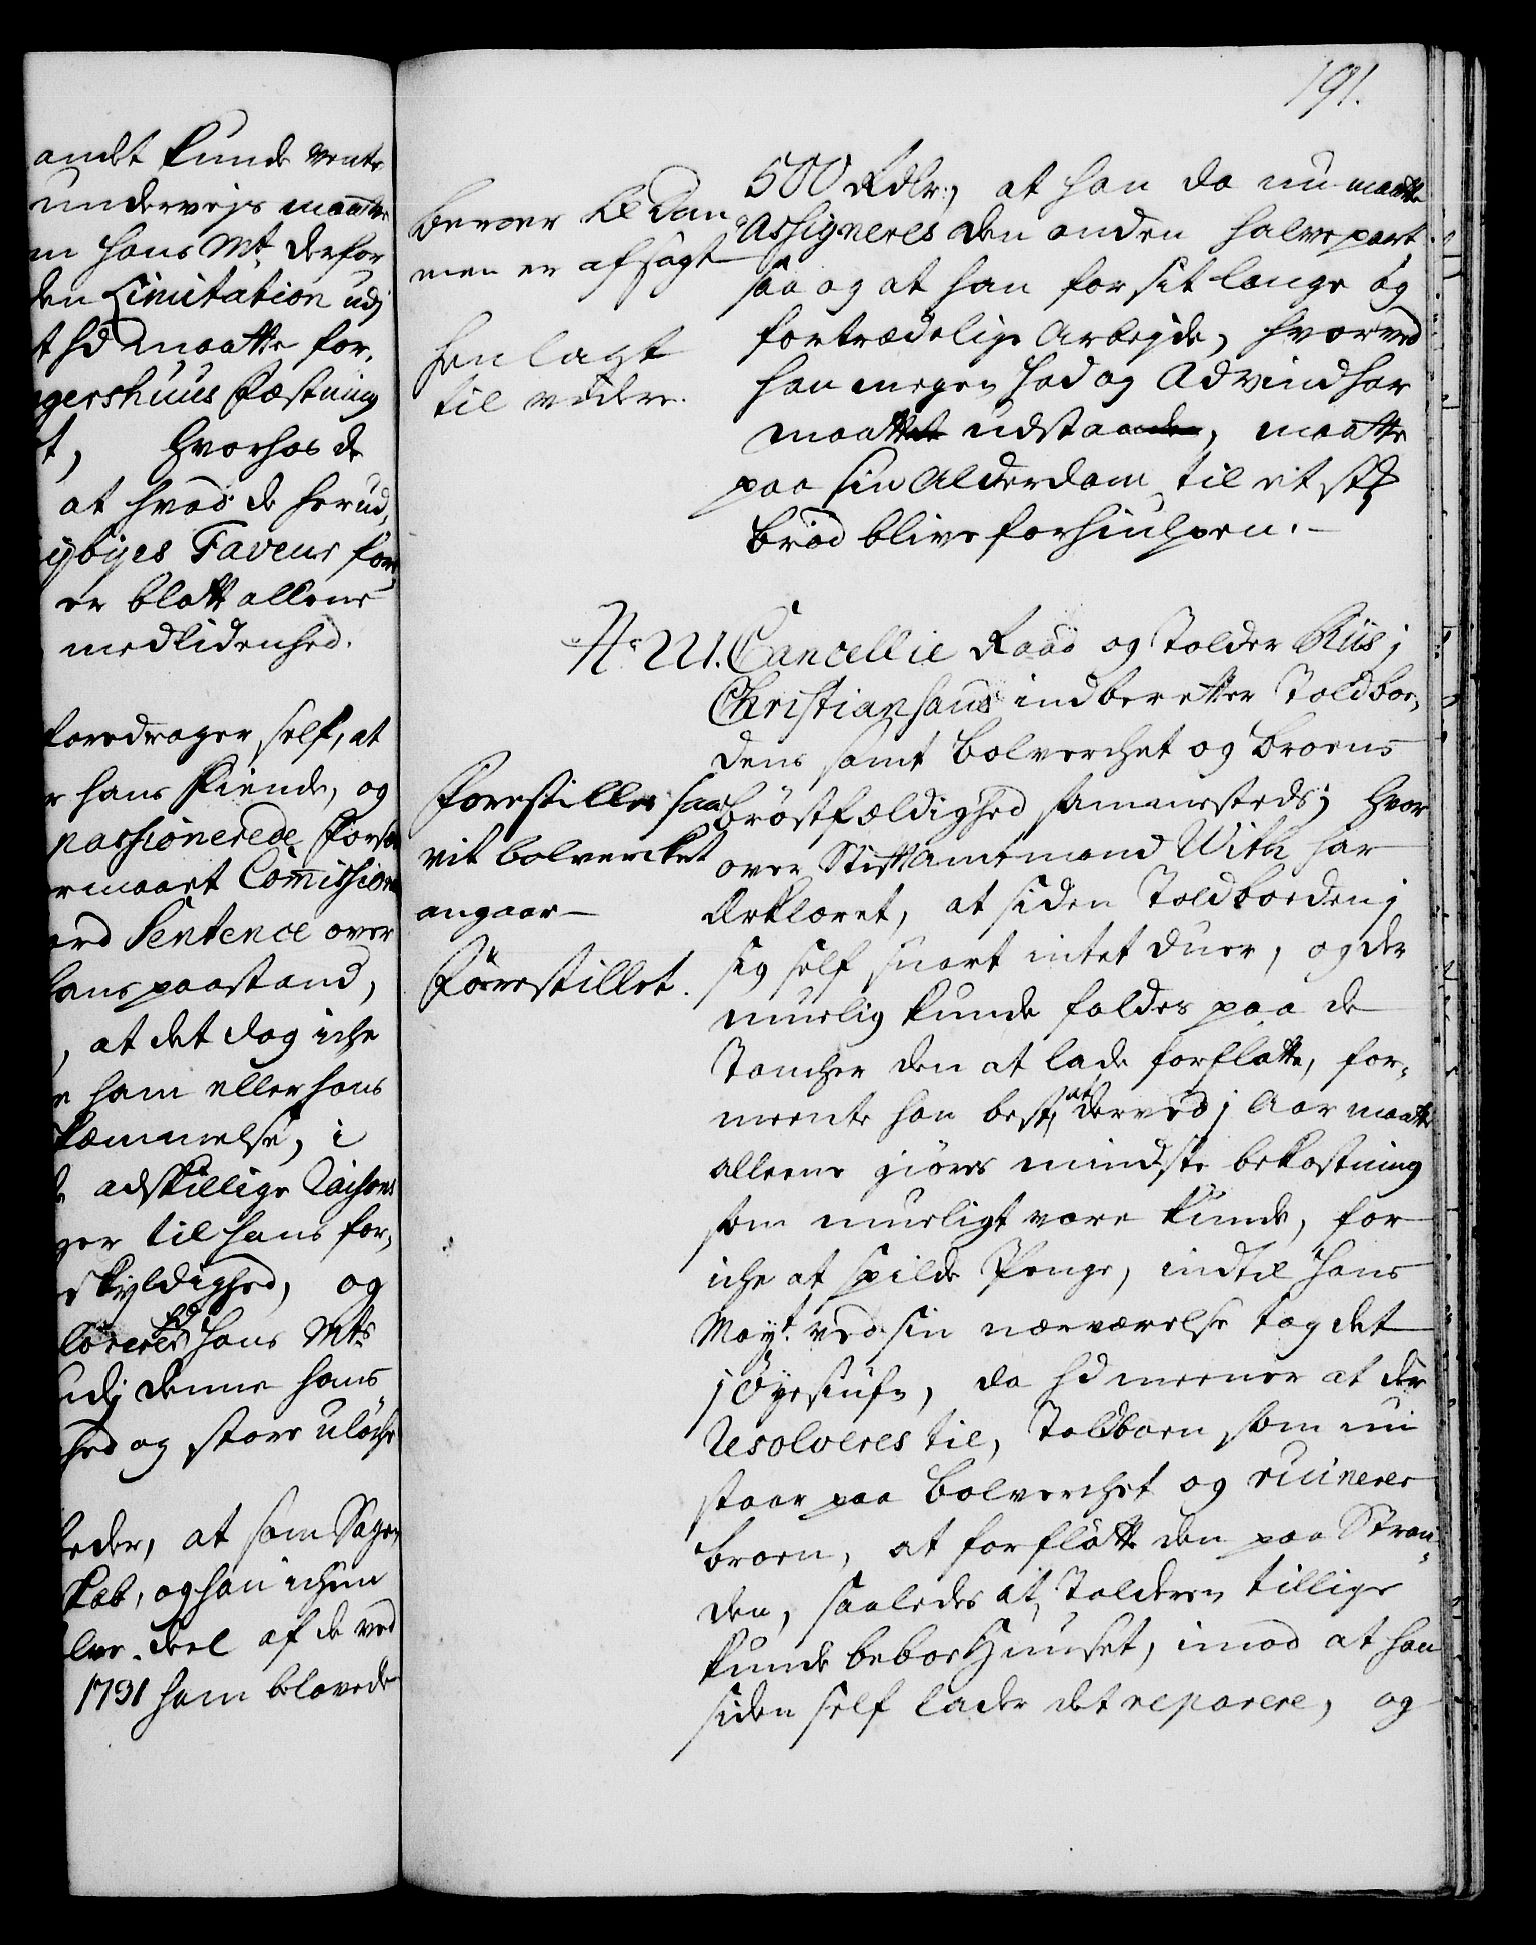 andet kunde vente
underveis maatte
m hans Mt. derfor
den Limitation udj
t hd maatte for,
gershuus Fæstning
t, hvorhos de
at hvad de herud,
er blott alleene
medlidenhed.
foredrager self, at
r hans Fiende, og
passionerede
Commission
Sentence over
hans paastand,
, at det dog iche
e ham eller hans
i
adskillige Raisons
ger til hans for,
skyldighed, og
hans Mts
udj denne hans
hed og store
at som Sagen
og han ichun
deel af de ved
1731 ham belovede
191.
beroer til Dom
men er afsagt
henlagt
til videre.
500 Rdlr., at han da nu maatte
Assigneres den anden halvepart
saa og at han for sit lange og
fortrædelige Arbejde, hvorved
han megen had og Advind har
maattet udstaaden, maatte
paa sin Alderdom til et st.
brød blive forhiulpen.
No. 221. Cancellie Raad og Tolder Riis j
Christiansand indberetter Toldboe,
dens samt bolverchet og broens
brøstfældighed sammesteds; hvor
over Stiftamtmand With har
Erklæret, at siden Toldboeden j
sig self snart intet duer, og der
muelig kunde faldes paa de
Tancher den at lade forflötte, for,
meente han best, at derved j Aar maatte
alleene giøres mindste bekostning
som mueligt være kunde, for
iche at spilde Penge, indtil hans
Mayt. ved sin nærværelse tog det
j Øyesiufn, da hd meener at der
Resolveres til, Toldboen som nu
staar paa bolverchet og ruinerer
broen, at forflötte den paa Stran,
den, saaledes at Tolderen tillige
kunde beboe Huuset, imod at han
siden self lader det reparere, og
Forestilles saa
vit bolverchet
angaar
Forestillet.